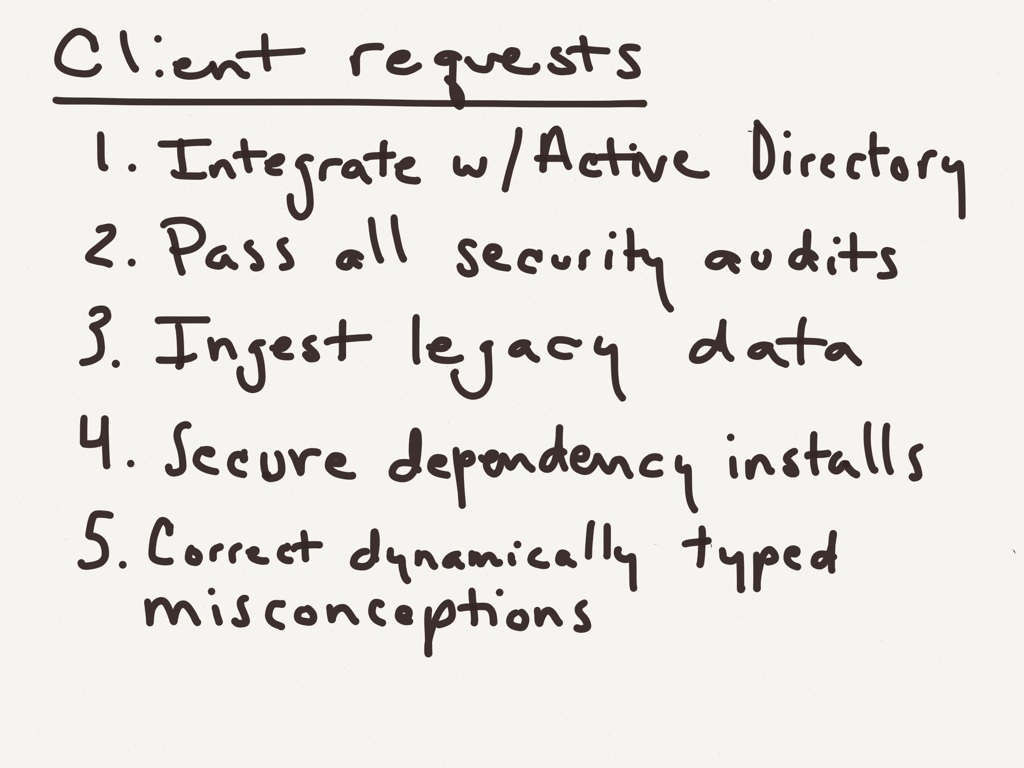 Client requests
1. Integrate w/Active Directory
2. Pass all security audits
3. Ingest legacy data
4. Secure dependency installs
5. Correct dynamically typed
misconceptions